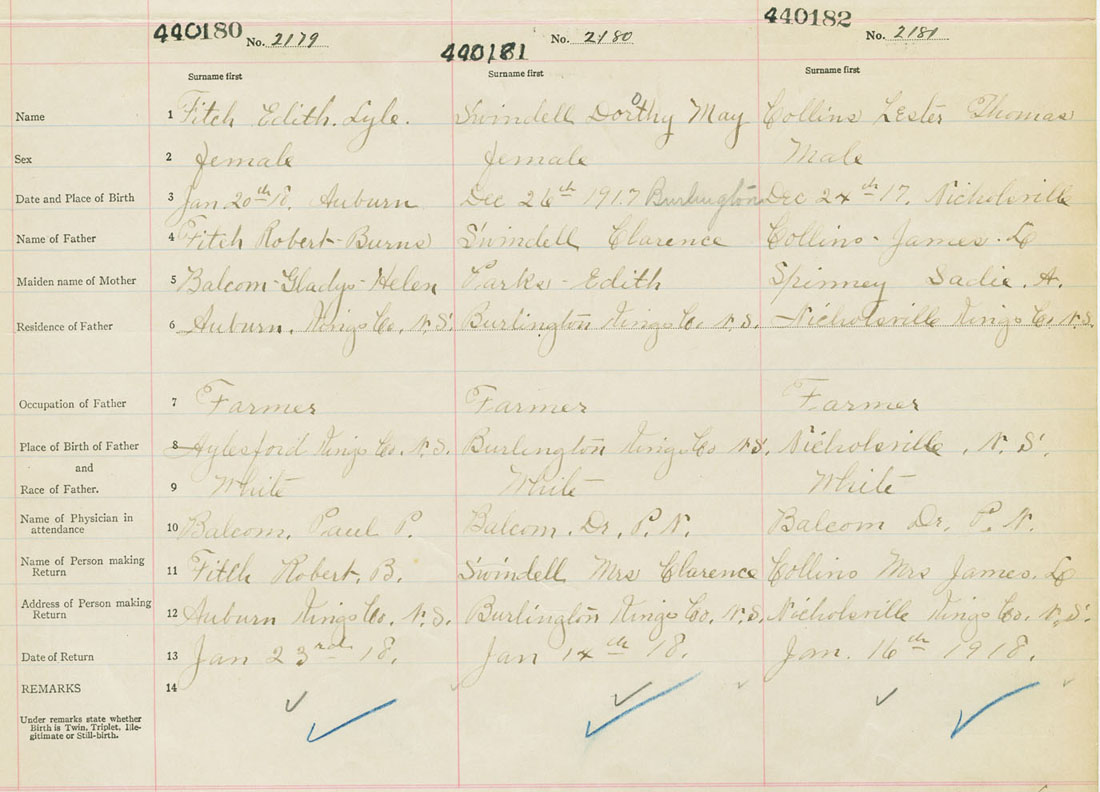 440180 No. 2179 440181 No. 2180 440182 No. 2181
Surname first Surname first Surname first
Name 1 Fitch Edith. Lyle. Swindell Dorothy May Collins Lester Thomas
Sex 2 female female Male
Date and Place of Birth 3 Jan 20th 18. Auburn Dec 26th 1917 Burlington Dec 24th 17. Nicholsville
Name of Father 4 Fitch Robert-Burns Swindell Clarence Collins-James.
Maiden name of Mother 5 Balcom-Gladys-Helen Parks-Edith Spinney Sadie. A.
Residence of Father 6 Auburn. Kings Co. N.S. Burlington Kings Co N.S. Nicholsville Kings Co, N.S.
Occupation of Father 7 Farmer Farmer Farmer
Place of Birth of Father 8 Aylesford Kings Co. N.S. Burlington Kings Co N.S. Nicholsville, N.S.
and
Race of Father. 9 White White White
Name of Physician in
attendance 10 Balcom. Paul P. Balcom. Dr, P. N. Balcom Dr, P. N.
Name of Person making
Return 11 Fitch Robert. B. Swindell Mrs Clarence Collins Mrs James.
Address of Person making
Return 12 Auburn Kings Co, N.S. Burlington Kings Co, N.S. Nicholsville Kings Co. N.S.
Date of Return 13 Jan 23rd 18. Jan 14th 18. Jan. 16th 1918.
REMARKS 14
Under remarks state whether
Birth is Twin, Triplet, Ille-
gitimate or Still-birth.